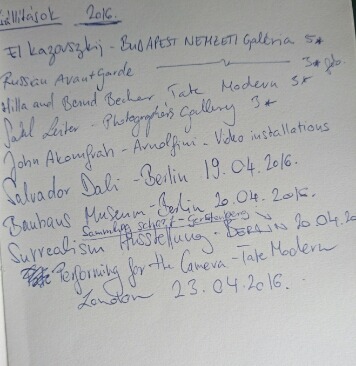 kiállítások 2016.
El Kazovszkij - BUDAPEST NEMZETI Galéria 5*
Russian Avantgarde 3*
Hilla and Bernd Becher Tate Modern 3*
Saul Leiter - Photographer's Gallery 3*
John Akomfrah - Arnolfini - Video installations
Salvador Dali - Berlin 19.04.2016.
Bauhaus Museum - Berlin 20.04.2016.
Sammlung Scharf-Gerstenberg
Surrealism Ausstellung - BERLIN 20.04.20
Performing for the Camera - Tate Modern
London 23.04.2016.